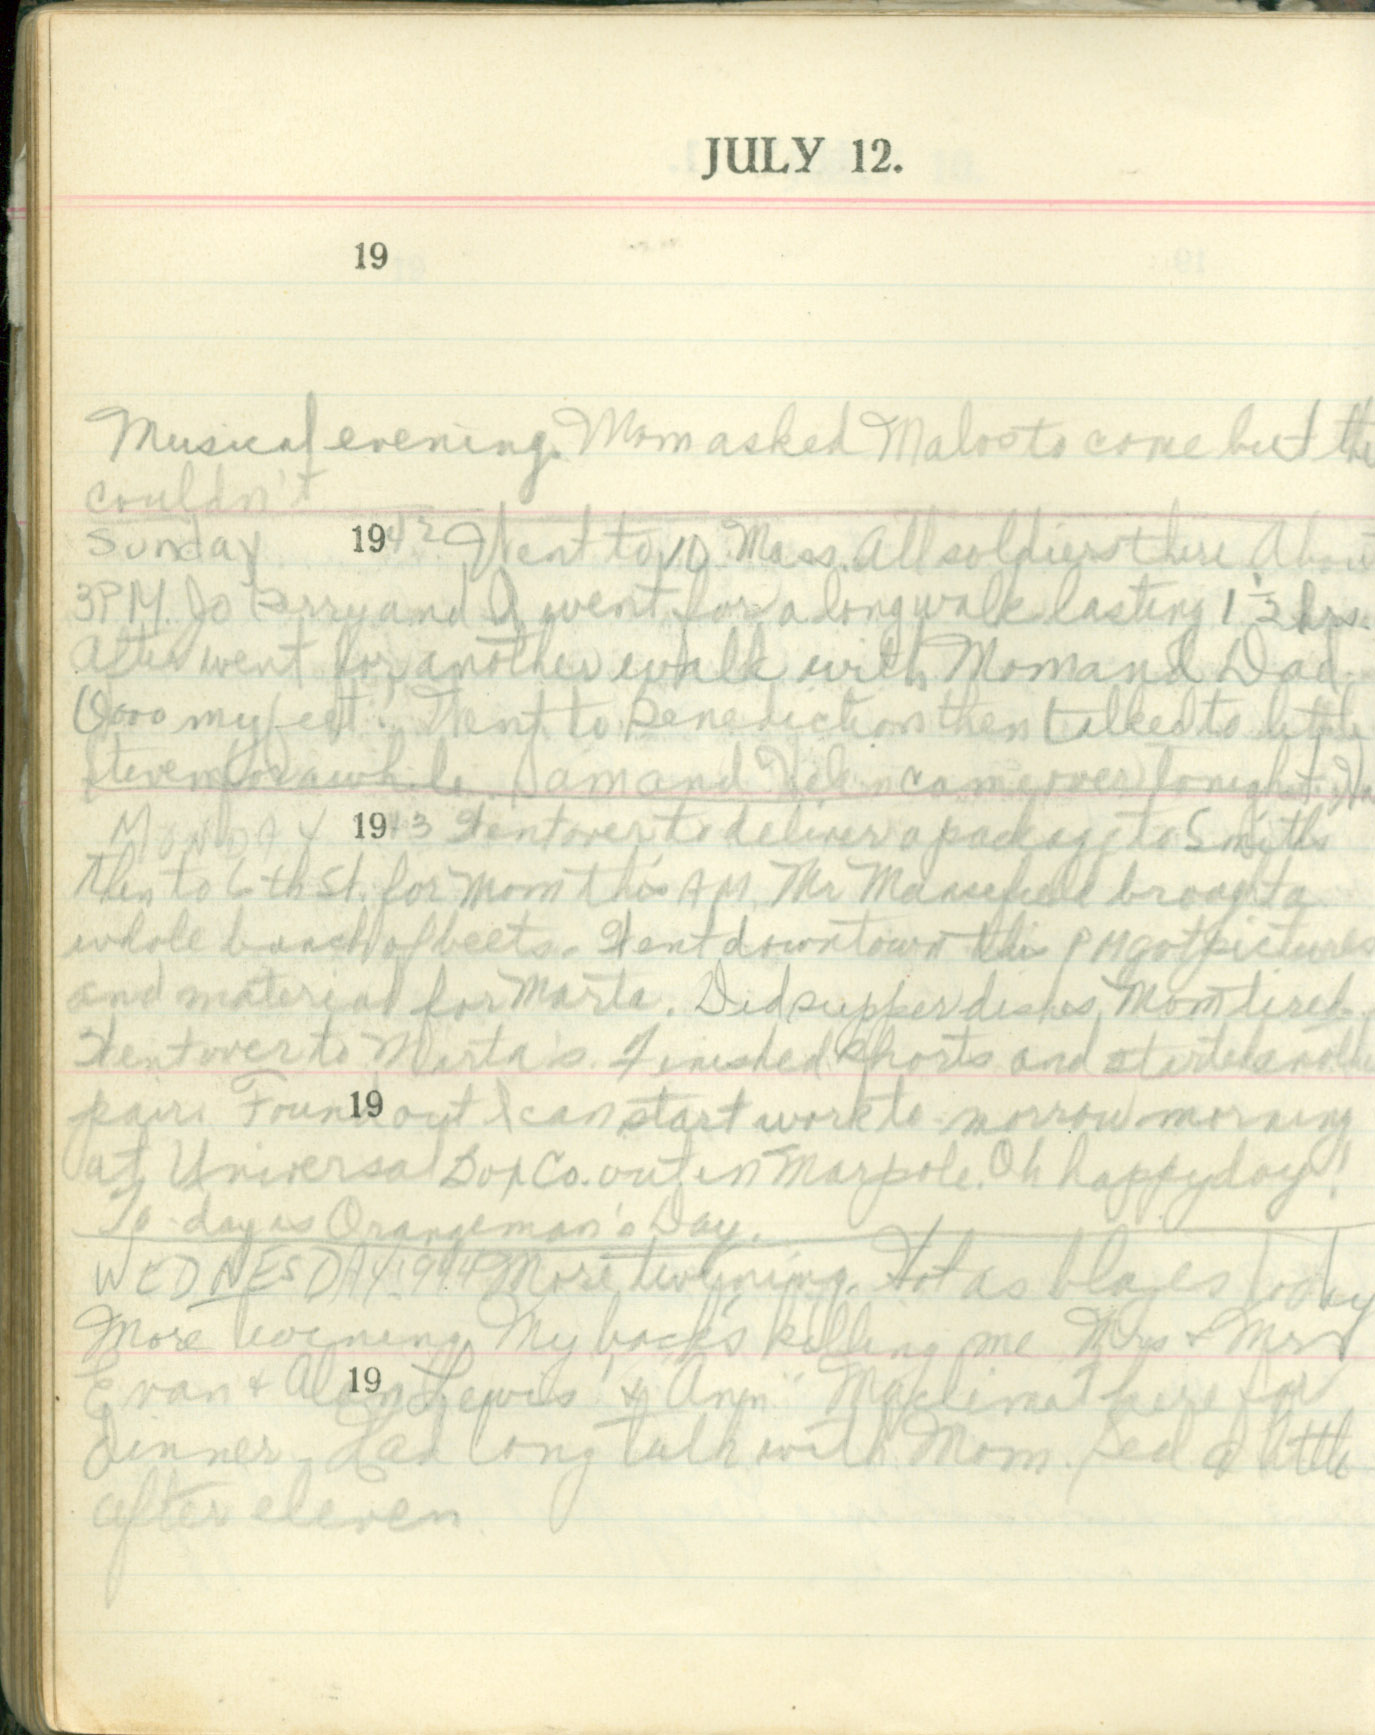 JULY 12.
19
Musical evening. Mom asked Malos to come but the
couldn't
Sunday 1942 Went to 10 Mass. All soldiers there. About
3PM. Jo Perry and I went for a long walk lasting 1 1/2 hrs.
After went for another walk with Mom and Dad.
Oooo my feet! Went to Benediction then talked to little
Steven for awhile. Sam and Helen came over tonight.
MONDAY 1943 Went over to deliver a package to Smiths
then to 6th St. for Mom this AM. Mr Mansfield brought a
whole bunch of beets. Went downtown this PM got pictures
and material for Marta. Did supper dishes, Mom tired.
Went over to Marta's. Finished shorts and started another
pair. Found out I can start work to-morrow morning
19
at Universal Box Co. out in Marpole. Oh happy day!
To-day is Orangeman's Day.
WEDNESDAY 1944 More twining. Hot as blazes today
More twining. My back's killing me Mrs + Mr
Evan + Alan Lewis + Ann here for
19
dinner. Had long talk with Mom. Bed a little
after eleven